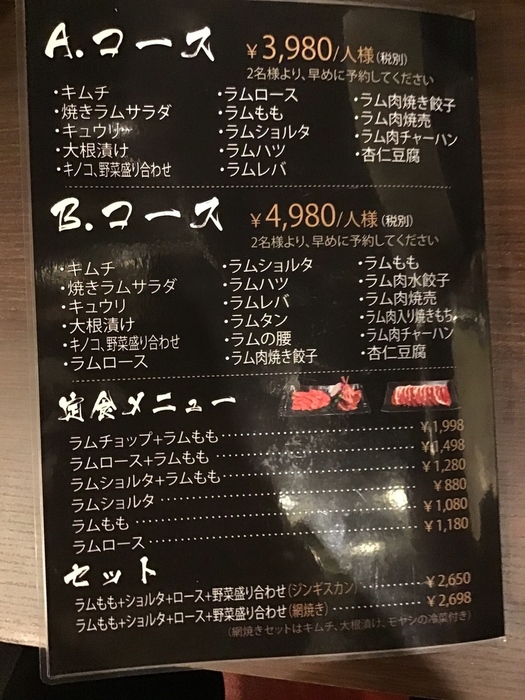 A.コース ￥3,980/人様(税別)
2名様より、早めに予約してください
・キムチ
・焼きラムサラダ
・キュウリ
・大根漬け
・キノコ、野菜盛り合わせ
・ラムロース
・ラムもも
・ラムショルタ
・ラムハツ
・ラムレバ
・ラム肉焼き餃子
・ラム肉焼売
・ラム肉チャーハン
・杏仁豆腐
B.コース ￥4,980/人様(税別)
2名様より、早めに予約してください
・キムチ
・焼きラムサラダ
・キュウリ
・大根漬け
・キノコ、野菜盛り合わせ
・ラムロース
・ラムショルタ
・ラムハツ
・ラムレバ
・ラムタン
・ラムの腰
・ラム肉焼き餃子
・ラムもも
・ラム肉水餃子
・ラム肉焼売
・ラム肉入り焼きもち
・ラム肉チャーハン
・杏仁豆腐
定食メニュー
ラムチョップ+ラムもも ￥1,998
ラムロース+ラムもも ￥1,498
ラムショルタ+ラムもも ￥1,280
ラムショルタ ￥880
ラムもも ￥1,080
ラムロース ￥1,180
セット
ラムもも+ショルタ+ロース+野菜盛り合わせ(ジンギスカン) ￥2,650
ラムもも+ショルタ+ロース+野菜盛り合わせ(網焼き) ￥2,698
(網焼きセットはキムチ、大根漬け、モヤシの冷菜付き)